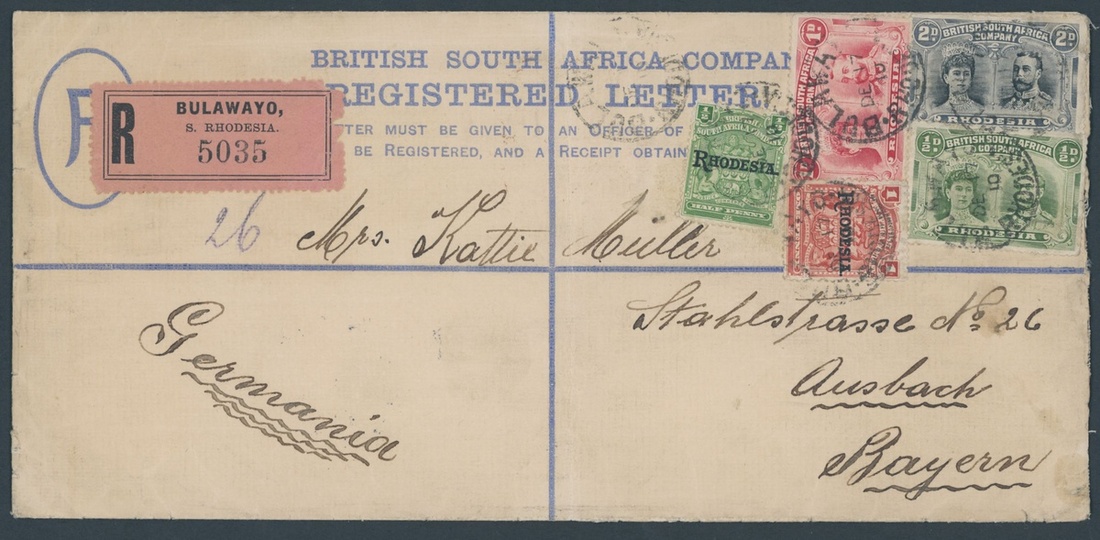 BRITISH SOUTH AFRICA COMPAN
REGISTERED LETTER
TTER MUST BE GIVEN TO AN OFFICER OF
BE REGISTERED, AND A RECEIPT OBTAIN
R
BULAWAYO,
S. RHODESIA.
5035
1D
BRITISH SOUTH AFRICA COMPANY
RHODESIA
2D 2D
BRITISH SOUTH AFRICA
COMPANY
RHODESIA
½ ½
BRITISH SOUTH AFRICA COMPANY
RHODESIA.
HALF PENNY
1
RHODESIA.
1
½D ½D
BRITISH SOUTH AFRICA
COMPANY
RHODESIA
BULAWAYO
DE
26
Mrs. Kattie Müller
Stahlstrasse No. 26
Ausbach
Bayern
Germania